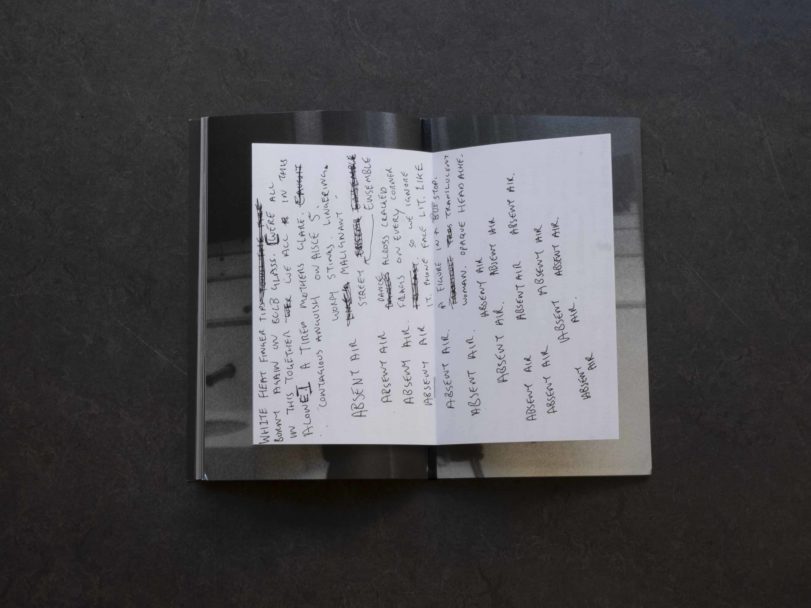 WHITE HEAT FINGER TIP
BURNT AGAIN ON BULB GLASS. WE'RE ALL
IN THIS TOGETHER WE ALL IN THIS
ALONE. A TIRED MOTHERS GLARE. CAUGHT
CONTAGIOUS ANGUISH ON AISLE 5.
WORM STINGS LINGERING.
MALIGNANT.
ABSENT AIR STREET ENSEMBLE
ABSENT AIR DANCE ACROSS CRACKED
ABSENT AIR. FRAMES ON EVERY CORNER
ABSENT AIR SO WE IGNORE
IT. PHONE FACE LIT. LIKE
ABSENT AIR. A FIGURE IN A BUS STOP.
TRANSLUCENT
ABSENT AIR. WOMAN. OPAQUE HEADACHE.
ABSENT AIR
ABSENT AIR. ABSENT AIR
ABSENT AIR ABSENT AIR.
ABSENT AIR
ABSENT AIR ABSENT AIR
ABSENT ABSENT AIR.
AIR.
ABSENT
AIR